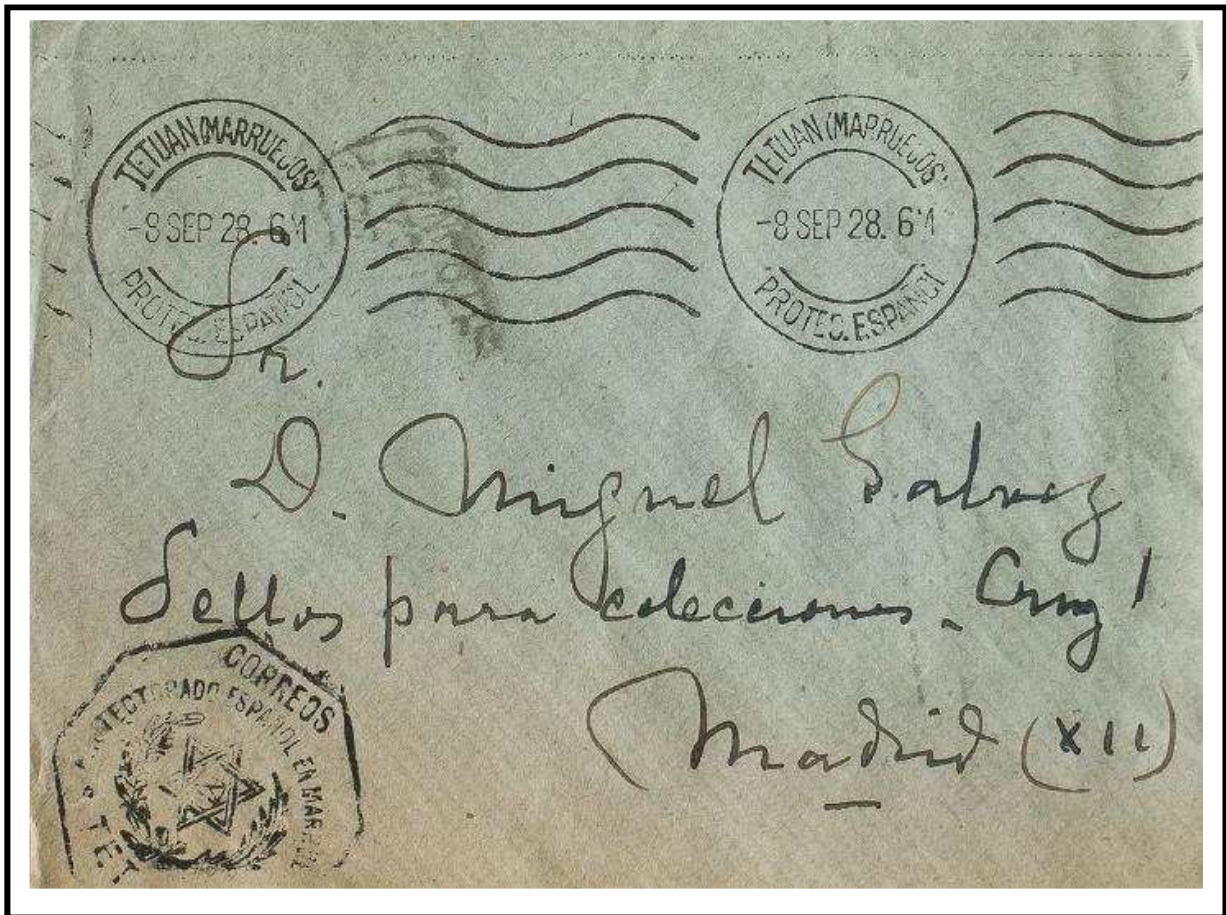 TETUAN (MARRUECOS)
-8 SEP 28. 6
PROTEC. ESPAÑOL
TETUAN (MARRUECOS)
-8 SEP 28. 6
PROTEC. ESPAÑOL
Sr.
D. Miguel Galvez
Sellos para colecciones. Cruz 1
Madrid (XII)
CORREOS
PROTECTORADO ESPAÑOL EN
TET